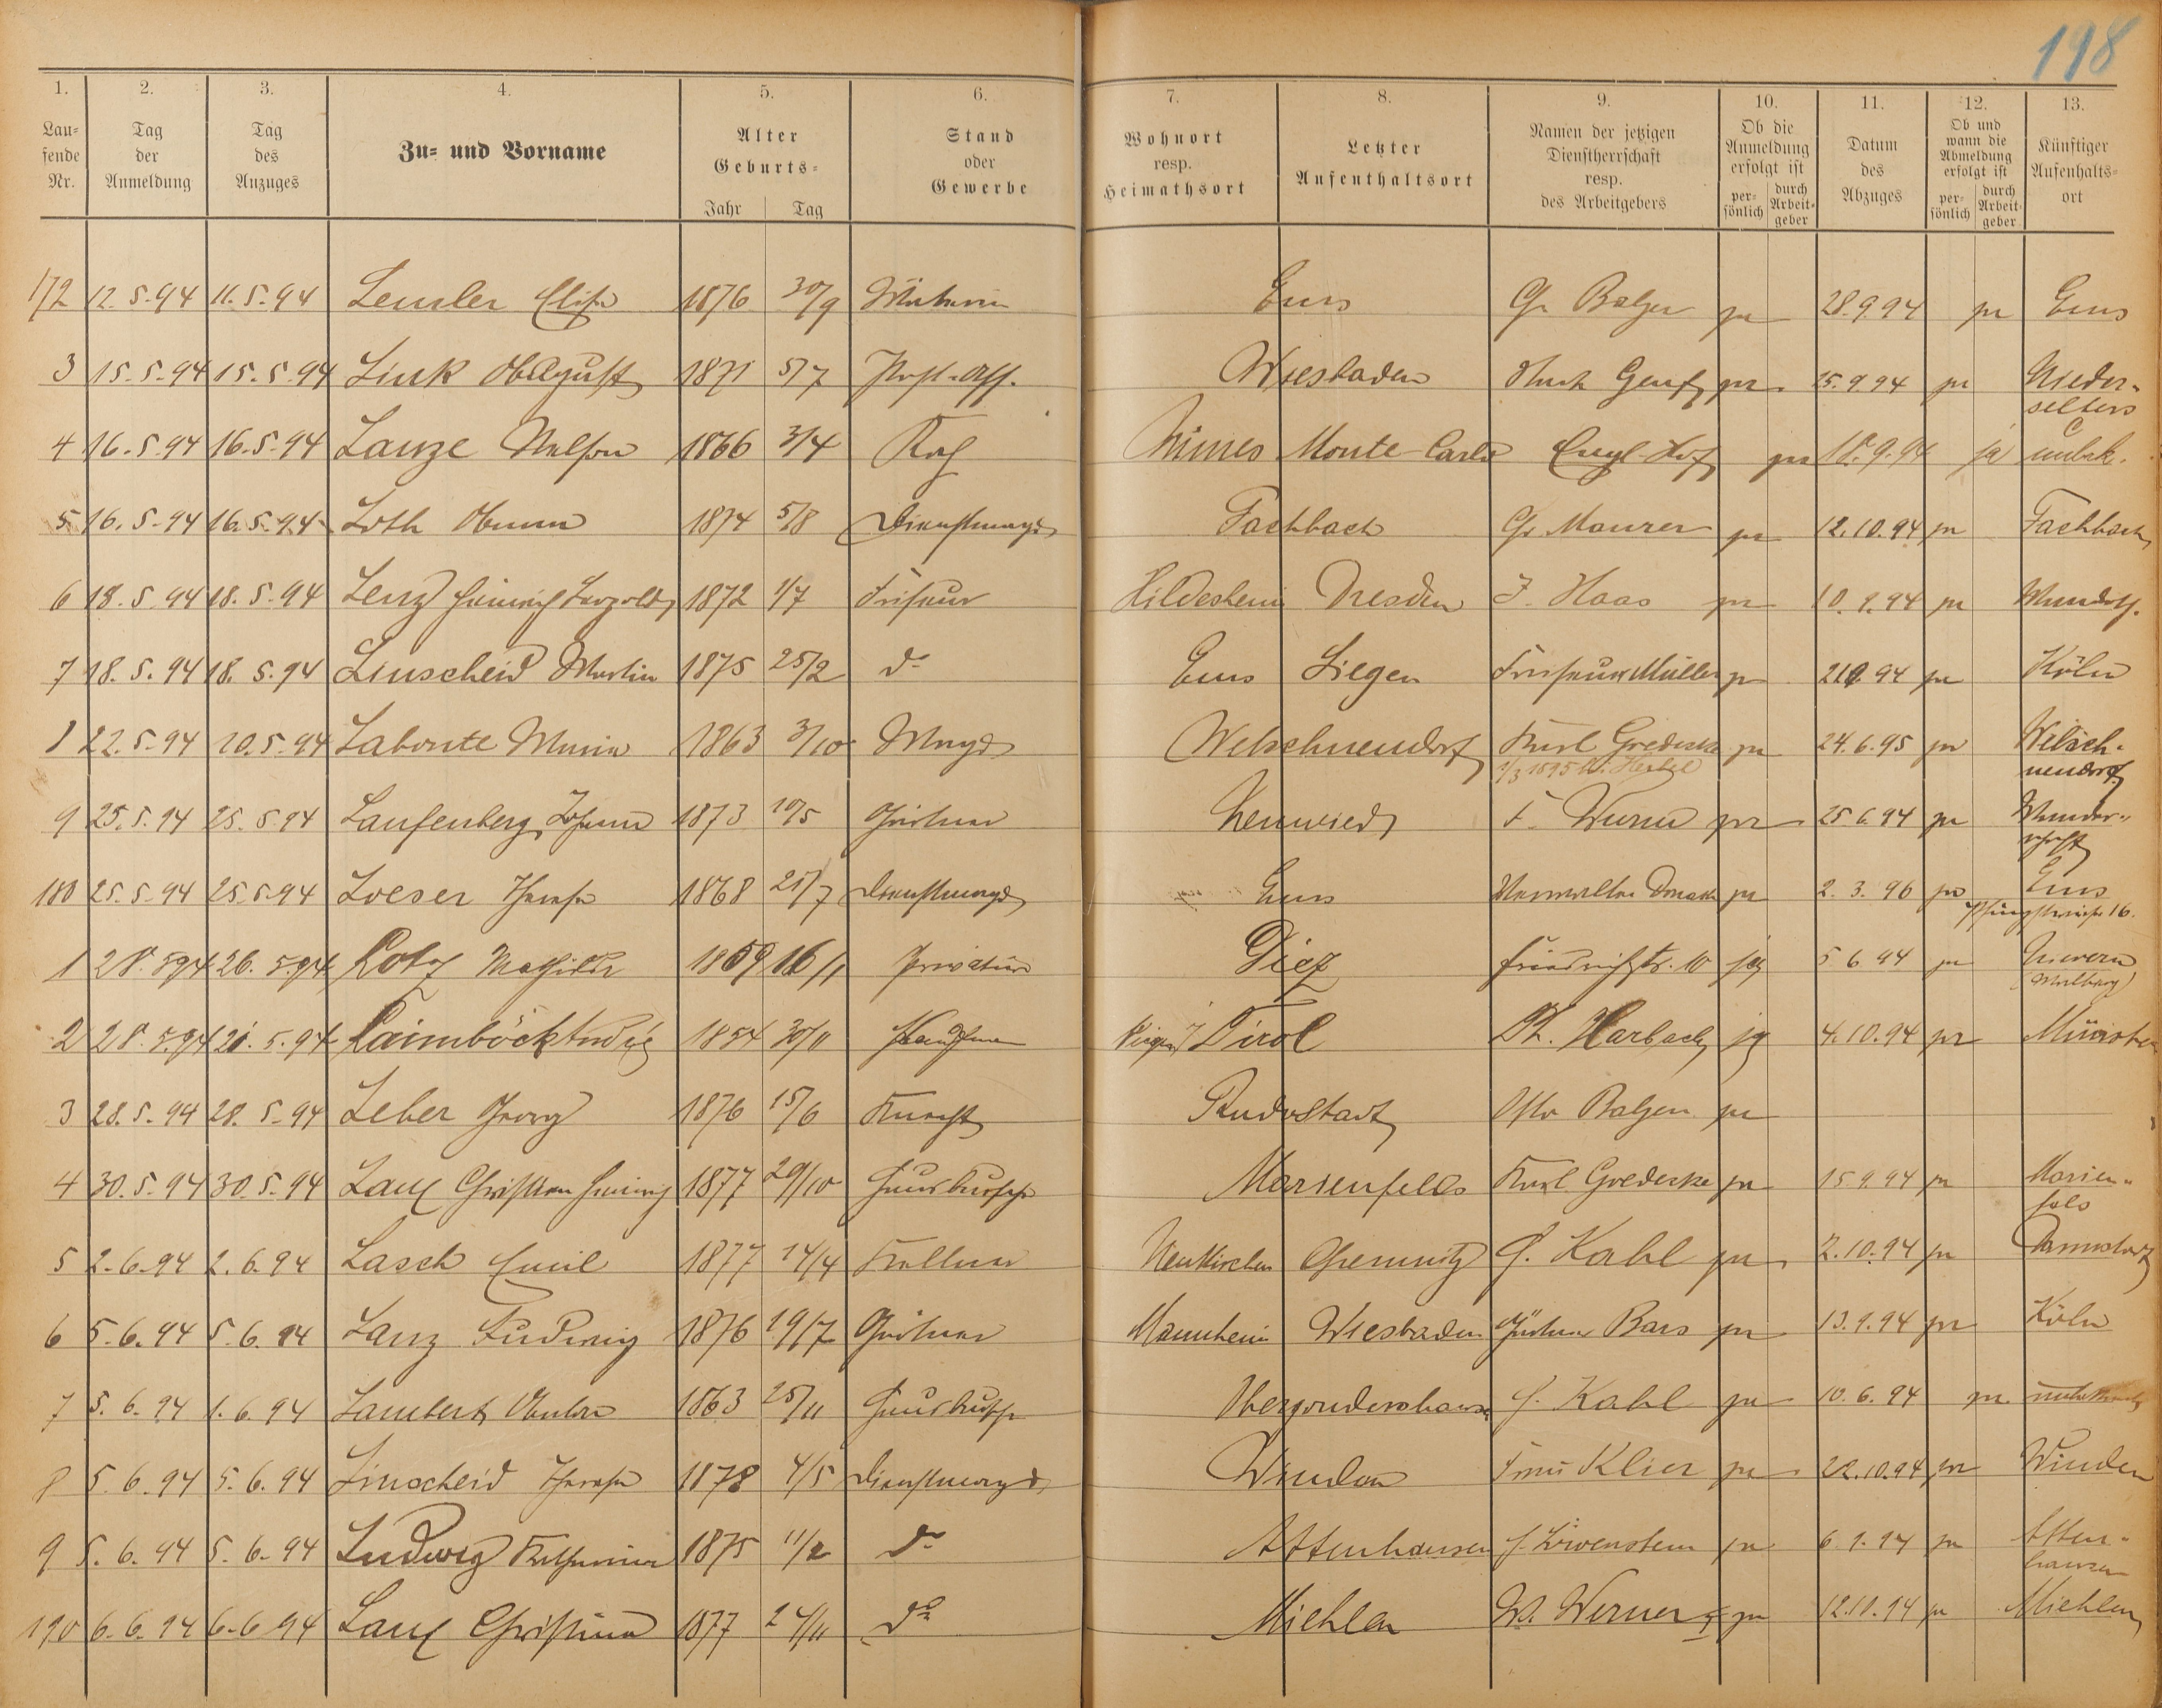 198
1. 2. 3. 4. 5. 6. 7. 8. 9. 10. 11. 12. 13.
Laufende Nr. Tag der Anmeldung Tag des Anzuges Zu- und Vorname Alter Geburts- Jahr Tag Stand oder Gewerbe Wohnort resp. Heimathsort Letzter Aufenthaltsort Namen der jetzigen Dienstherrschaft resp. des Arbeitgebers Ob die Anmeldung erfolgt ist persönlich durch Arbeitgeber Datum des Abzuges Ob und wann die Abmeldung erfolgt ist persönlich durch Arbeitgeber Künftiger Aufenhalts-ort
172 12.5.94 11.5.94 Lemler Elise 1876 30/9 Ems Balzer pr 28.9.94 pr Ems
3 15.5.94 15.5.94 Link August 1871 5/7 Wiesbaden pr 25.9.94 pr Nieder-
selters
4 16.5.94 16.5.94 Lanze 1866 3/4 Nimes Monte-Carlo Engl. Hof 18.9.94 unbek.
5 16.5.94 16.5.94 Loth 1874 5/8 Dienstmagd Fachbach Gr. Maurer pr 12.10.94 pr Fachbach
6 18.5.94 18.5.94 Lenz Heinrich Leopold 1872 1/7 Friseur Hildesheim Dresden J. Haas pr 10.9.94 pr
7 18.5.94 18.5.94 Linscheid Martin 1875 25/2 do Ems Siegen Friseur Müller pr 94 pr Köln
8 22.5.94 20.5.94 Labonte Maria 1863 3/10 Magd Welschneudorf Karl Goedecke pr 24.6.95 pr Welsch-
1/3 1895 W. Hertel neudorf
9 25.5.94 25.5.94 Laufenberg Johann 1873 10/5 Gärtner Neuwied F. Wurm pr 25.6.94 pr Wander-
schaft
180 25.5.94 25.5.94 Loeser Therese 1868 25/7 Dienstmagd Ems pr 2.3.96 pr Ems
16.
1 28.5.94 26.5.94 Lotz Mathilde 1859 16/11 Diez Friedrichstr. 10 5.6.94 pr Nievern
2 28.5.94 28.5.94 Laimböck Ludwig 1854 30/11 Tirol Ph. Harbach 4.10.94 pr Münster
3 28.5.94 28.5.94 Leber Georg 1876 15/6 Knecht Rudolstadt Otto Balzer pr
4 30.5.94 30.5.94 Laux Christian Heinrich 1877 29/10 Hausbursche Marienfels Karl Goedecke pr 15.9.94 pr Marien-
fels
5 2.6.94 2.6.94 Lasch Emil 1877 14/4 Kellner Neukirchen Chemnitz F. Kahl pr 2.10.94 pr Darmstadt
6 5.6.94 5.6.94 Lanz Ludwig 1876 19/7 Gärtner Mannheim Wiesbaden Gärtner Bars pr 13.9.94 pr Köln
7 5.6.94 1.6.94 Lambert 1863 25/11 Hausbursche Obergondershausen F. Kahl pr 10.6.94 pr. unbekannt
8 5.6.94 5.6.94 Linscheid Therese 1878 4/5 Dienstmagd Winden Frau Klier pr 22.10.94 pr Winden
9 5.6.94 5.6.94 Ludwig Katharina 1875 11/2 do Attenhausen J. Löwenstein pr 6.9.94 pr Atten-
hausen
190 6.6.94 6.6.94 Laux Christina 1877 24/11 do Miehlen W. Werner pr 12.10.94 pr Miehlen